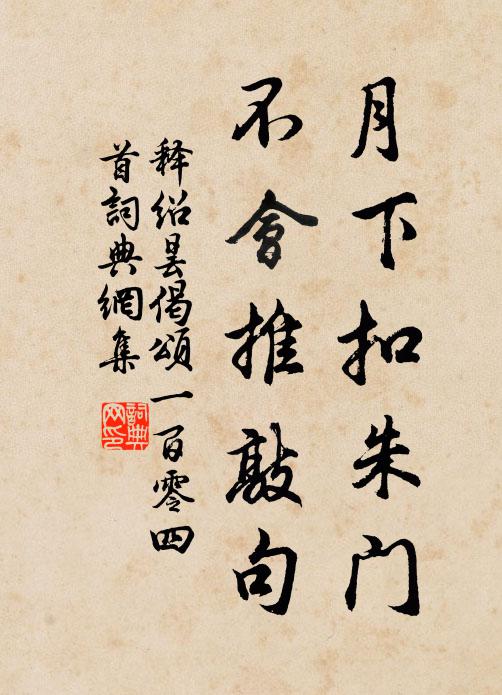 月下扣朱门
不會推敲句
释绍昙偈頌一百零四
首詞典網集
詞典
网印